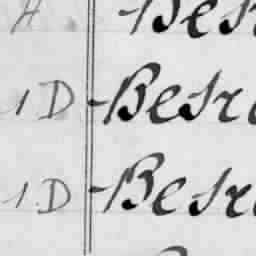 A Besr
1 D - Besr
1 D - Besr